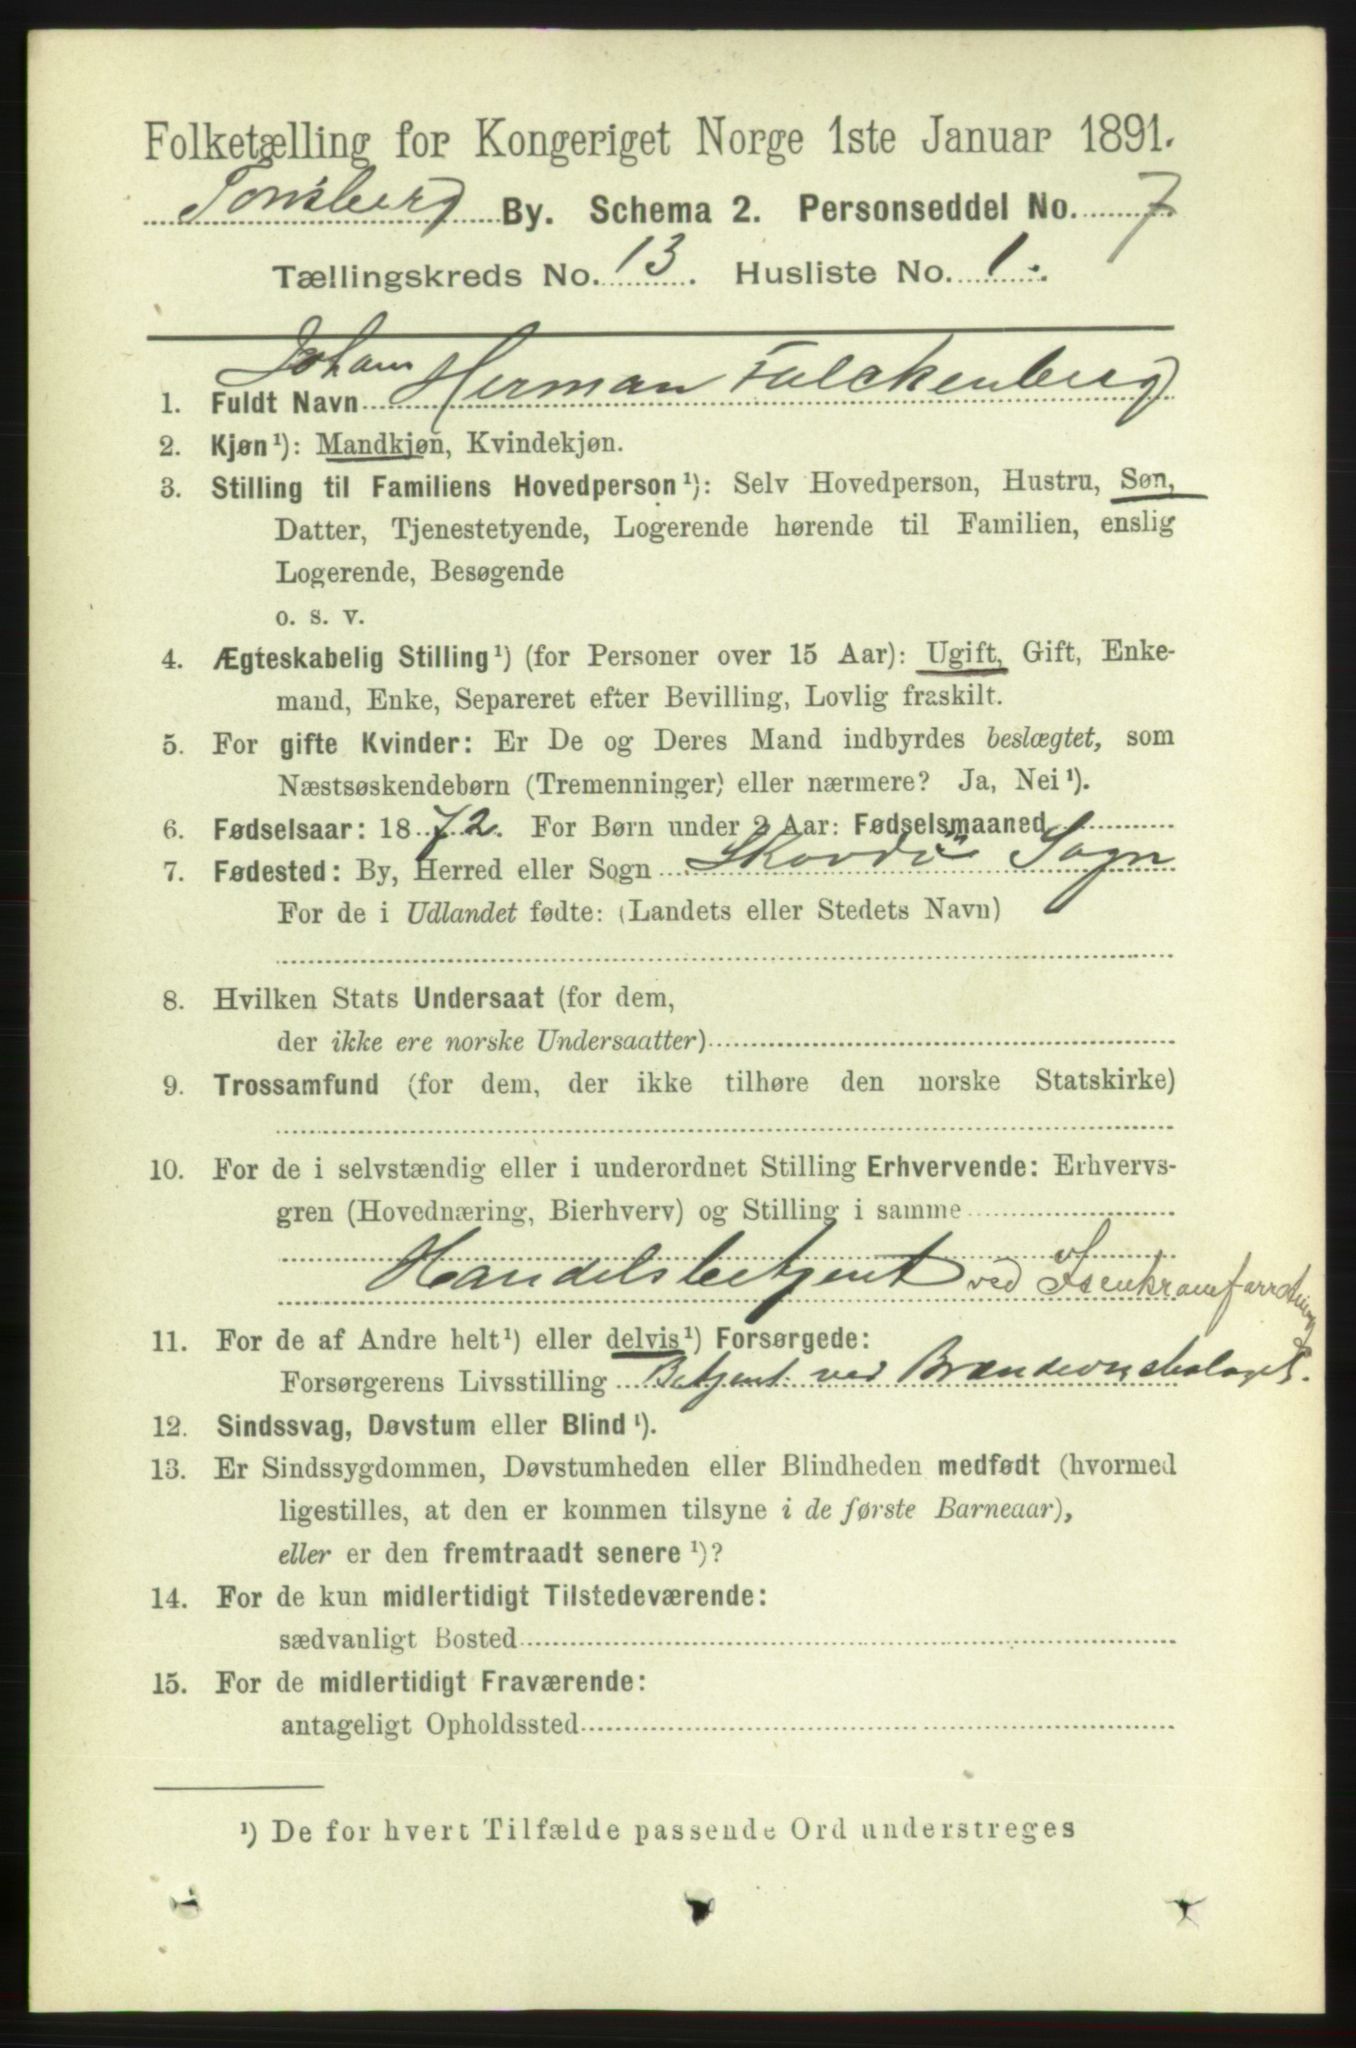 Folketælling for Kongeriget Norge 1ste Januar 1891.
Tønsberg By. Schema 2. Personseddel No. 7
Tællingskreds No. 13. Husliste No. 1.
Johan
1. Fuldt Navn Herman Falckenberg
2. Kjøn¹): Mandkjøn, Kvindekjøn.
3. Stilling til Familiens Hovedperson¹): Selv Hovedperson, Hustru, Søn,
Datter, Tjenestetyende, Logerende hørende til Familien, enslig
Logerende, Besøgende
o. s. v.
4. Ægteskabelig Stilling¹) (for Personer over 15 Aar): Ugift, Gift, Enke-
mand, Enke, Separeret efter Bevilling, Lovlig fraskilt.
5. For gifte Kvinder: Er De og Deres Mand indbyrdes beslægtet, som
Næstsøskendebørn (Tremenninger) eller nærmere? Ja, Nei¹).
6. Fødselsaar: 1872. For Børn under 2 Aar: Fødselsmaaned
7. Fødested: By, Herred eller Sogn Skovdø Sogn
For de i Udlandet fødte: (Landets eller Stedets Navn)
8. Hvilken Stats Undersaat (for dem,
der ikke ere norske Undersaatter)
9. Trossamfund (for dem, der ikke tilhøre den norske Statskirke)
10. For de i selvstændig eller i underordnet Stilling Erhvervende: Erhvervs-
gren (Hovednæring, Bierhverv) og Stilling i samme
Handelsbetjent ved Isenkramforretning
11. For de af Andre helt¹) eller delvis¹) Forsørgede:
Forsørgerens Livsstilling Betjent ved
12. Sindssvag, Døvstum eller Blind¹).
13. Er Sindssygdommen, Døvstumheden eller Blindheden medfødt (hvormed
ligestilles, at den er kommen tilsyne i de første Barneaar),
eller er den fremtraadt senere¹)?
14. For de kun midlertidigt Tilstedeværende:
sædvanligt Bosted
15. For de midlertidigt Fraværende:
antageligt Opholdssted
¹) De for hvert Tilfælde passende Ord understreges